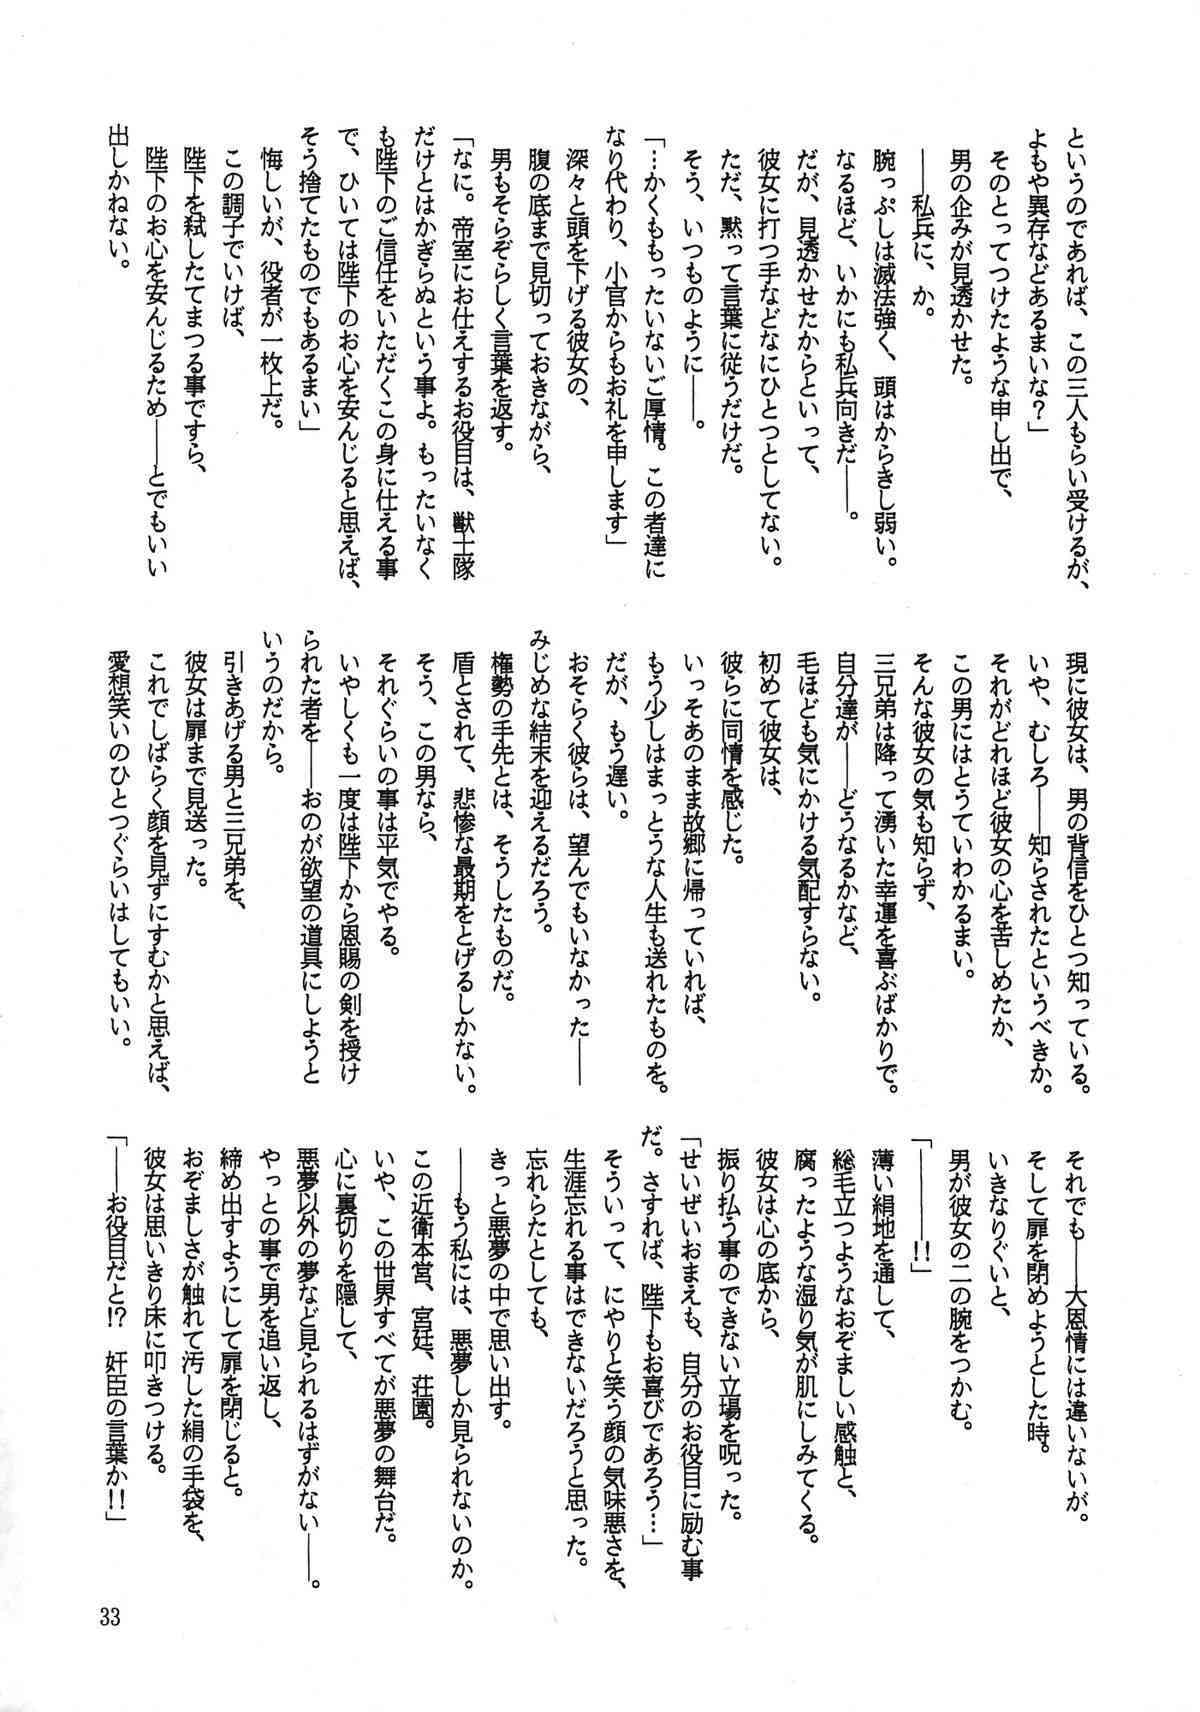 というのであれば、この三人もらい受けるが、
よもや異存などあるまいな?」
そのとってつけたような申し出で、
男の企みが見透かせた。
――私兵に、か。
腕っぷしは滅法強く、頭はからきし弱い。
なるほど、いかにも私兵向きだ――。
だが、見透かせたからといって、
彼女に打つ手などなにひとつとしてない。
ただ、黙って言葉に従うだけだ。
そう、いつものように――。
「…かくももったいないご厚情。この者達に
なり代わり、小官からもお礼を申します」
深々と頭を下げる彼女の、
腹の底まで見切っておきながら、
男もそらぞらしく言葉を返す。
「なに。帝室にお仕えするお役目は、獣士隊
だけとはかぎらぬという事よ。もったいなく
も陛下のご信任をいただくこの身に仕える事
で、ひいては陛下のお心を安んじると思えば、
そう捨てたものでもあるまい」
悔しいが、役者が一枚上だ。
この調子でいけば、
陛下を弑したてまつる事ですら、
陛下のお心を安んじるため――とでもいい
出しかねない。
現に彼女は、男の背信をひとつ知っている。
いや、むしろ――知らされたというべきか。
それがどれほど彼女の心を苦しめたか、
この男にはとうていわかるまい。
そんな彼女の気も知らず、
三兄弟は降って湧いた幸運を喜ぶばかりで。
自分達が――どうなるかなど、
毛ほども気にかける気配すらない。
初めて彼女は、
彼らに同情を感じた。
いっそあのまま故郷に帰っていれば、
もう少しはまっとうな人生も送れたものを。
だが、もう遅い。
おそらく彼らは、望んでもいなかった――
みじめな結末を迎えるだろう。
権勢の手先とは、そうしたものだ。
盾とされて、悲惨な最期をとげるしかない。
そう、この男なら、
それぐらいの事は平気でやる。
いやしくも一度は陛下から恩賜の剣を授け
られた者を――おのが欲望の道具にしようと
いうのだから。
引きあげる男と三兄弟を、
彼女は扉まで見送った。
これでしばらく顔を見ずにすむかと思えば、
愛想笑いのひとつぐらいはしてもいい。
それでも――大恩情には違いないが。
そして扉を閉めようとした時。
いきなりぐいと、
男が彼女の二の腕をつかむ。
「――――!!」
薄い絹地を通して、
総毛立つようなおぞましい感触と、
腐ったような湿り気が肌にしみてくる。
彼女は心の底から、
振り払う事のできない立場を呪った。
「せいぜいおまえも、自分のお役目に励む事
だ。さすれば、陛下もお喜びであろう…」
そういって、にやりと笑う顔の気味悪さを、
生涯忘れる事はできないだろうと思った。
忘れらたとしても、
きっと悪夢の中で思い出す。
――もう私には、悪夢しか見られないのか。
この近衛本営、宮廷、荘園。
いや、この世界すべてが悪夢の舞台だ。
心に裏切りを隠して、
悪夢以外の夢など見られるはずがない――。
やっとの事で男を追い返し、
締め出すようにして扉を閉じると。
おぞましさが触れて汚した絹の手袋を、
彼女は思いきり床に叩きつける。
「――お役目だと!? 奸臣の言葉か!!」
33